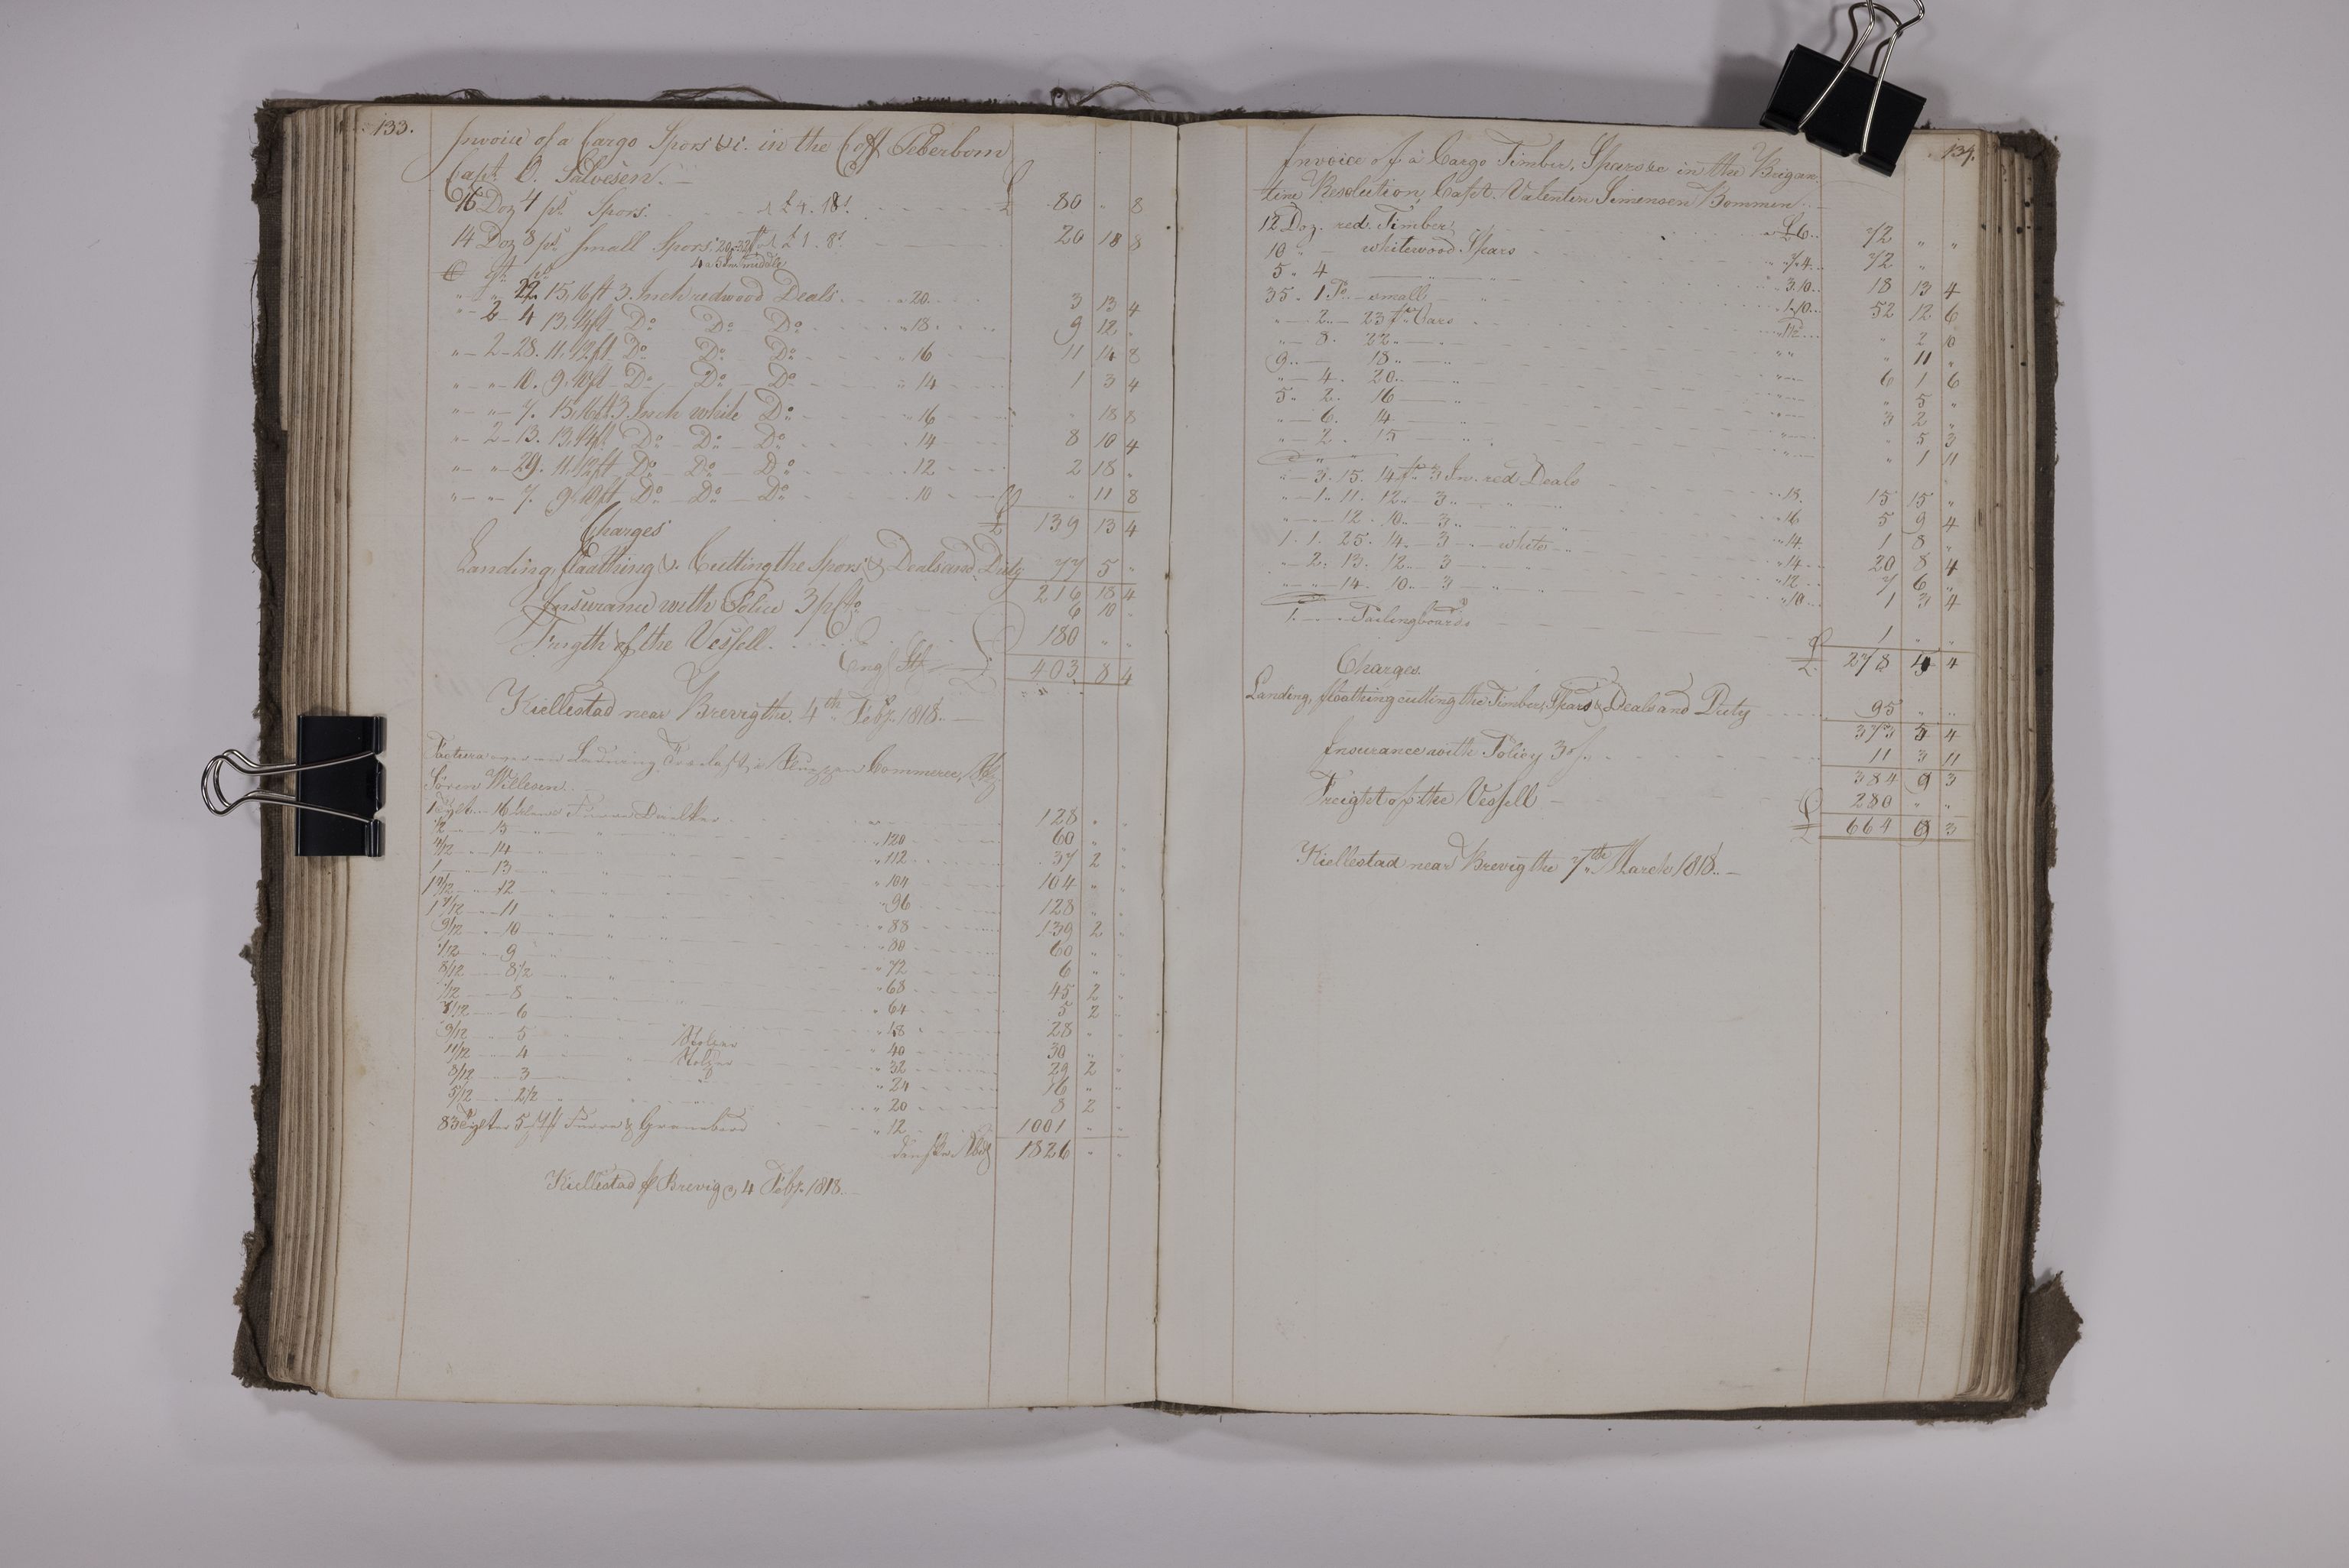 133.
Invoice of a Cargo Spors &c. in the Coff Peberbom
Capt. O. Salvesen.
16 Doz 4 ps. Spors. a £ 4. 18 s. £ 80 " 8
14 Doz 8 ps. Small Spors a £ 1. 8 s. 20 18 8
4 a 5 In middle
" " 22. 15, 16 ft 3 Inch redwood Deals " 20. 3 13 4
" 2 4 13, 14 ft Do Do Do " 18. 9 12 "
" 2 28. 11, 12 ft Do Do Do " 16 11 14 8
" " 10. 9, 10 ft Do Do Do " 14 1 3 4
" " 7. 15, 16 ft 3 Inch white Do " 16 " 18 8
" 2 13. 13, 14 ft Do Do Do " 14 8 10 4
" " 29. 11, 12 ft Do Do Do " 12 2 18 "
" " 7. 9, 10 ft Do Do Do " 10 " 11 8
£ 139 13 4
Charges
Landing, floathing & Cutting the Spors & Deals and Duty 77 5 "
216 18 4
Insurance with Police 3 pCto 6 10 "
Freigth of the Vessell 180 " "
Engl. Stg £ 403 8 4
Kiellestad near Brevig the 4th Feby. 1818.
Commerce,
Søren Willesen.
1 Tylt 16 128 " "
1/2 " 15 " " " 120 60 " "
4/12 " 14 " " " 112 37 2 "
1 " 13 " " " 104 104 " "
1 4/12 " 12 " " " 96 128 " "
1 7/12 " 11 " " " 88 139 2 "
9/12 " 10 " " " 80 60 " "
1/12 " 9 " " " 72 6 " "
8/12 8 1/2 " " " 68 45 2 "
1/12 8 " " " 64 5 2 "
7/12 6 " " 48 28 " "
9/12 5 " Stolper " 40 30 " "
11/12 4 " Stolper " 32 29 2 "
8/12 3 " " " 24 16 " "
5/12 2 1/2 " " " 20 8 2 "
83 Tylter " 12 1001 " "
1826 " "
Kiellestad pr Brevig d. 4 Feby. 1818.
134.
Invoice of a Cargo Timber, Spears &c in the Brigan-
tine Resolution, Capt. Valentin Simensen Bommen.
12 Doz. red Timber a £ 6. 72 " "
10 " whitewood Spears " 7. 4. 72 "
5 " 4 " " 3. 10. 18 13 4
35. 1 Do small " 1. 10. 52 12 6
" 2. 23 ft Oars " 2 10
" 8. 22 " " " " 11 "
9. 18 " " " 6 1 6
" 4. 20 " " " " 5 "
5 " 2. 16 " " 3 2 "
" 6. 14 " " " 5 3
" 2. 15 " " " 1 11
" 3. 15. 14 ft 3 In. red Deals " 18. 15 15 "
" 1. 11. 12 " 3 " " " 16 5 9 4
" " 12. 10 " 3 " " " 14. 1 8 "
1. 1. 25. 14. 3 " white " 14 20 8 4
" 2. 13. 12. 3 " " " 12 7 6 "
" " 14. 10 " 3 " " " 10 1 3 4
1. Pailingboards 1 " "
£ 278 5 4
Charges.
Landing, floathing cutting the Timber, Spears & Deals and Duty 95 " "
373 5 4
Insurance with Policy 3 11 3 11
384 9 3
Freight of the Vessell 280 " "
£ 664 9 3
Kiellestad near Brevig the 7th March 1818.